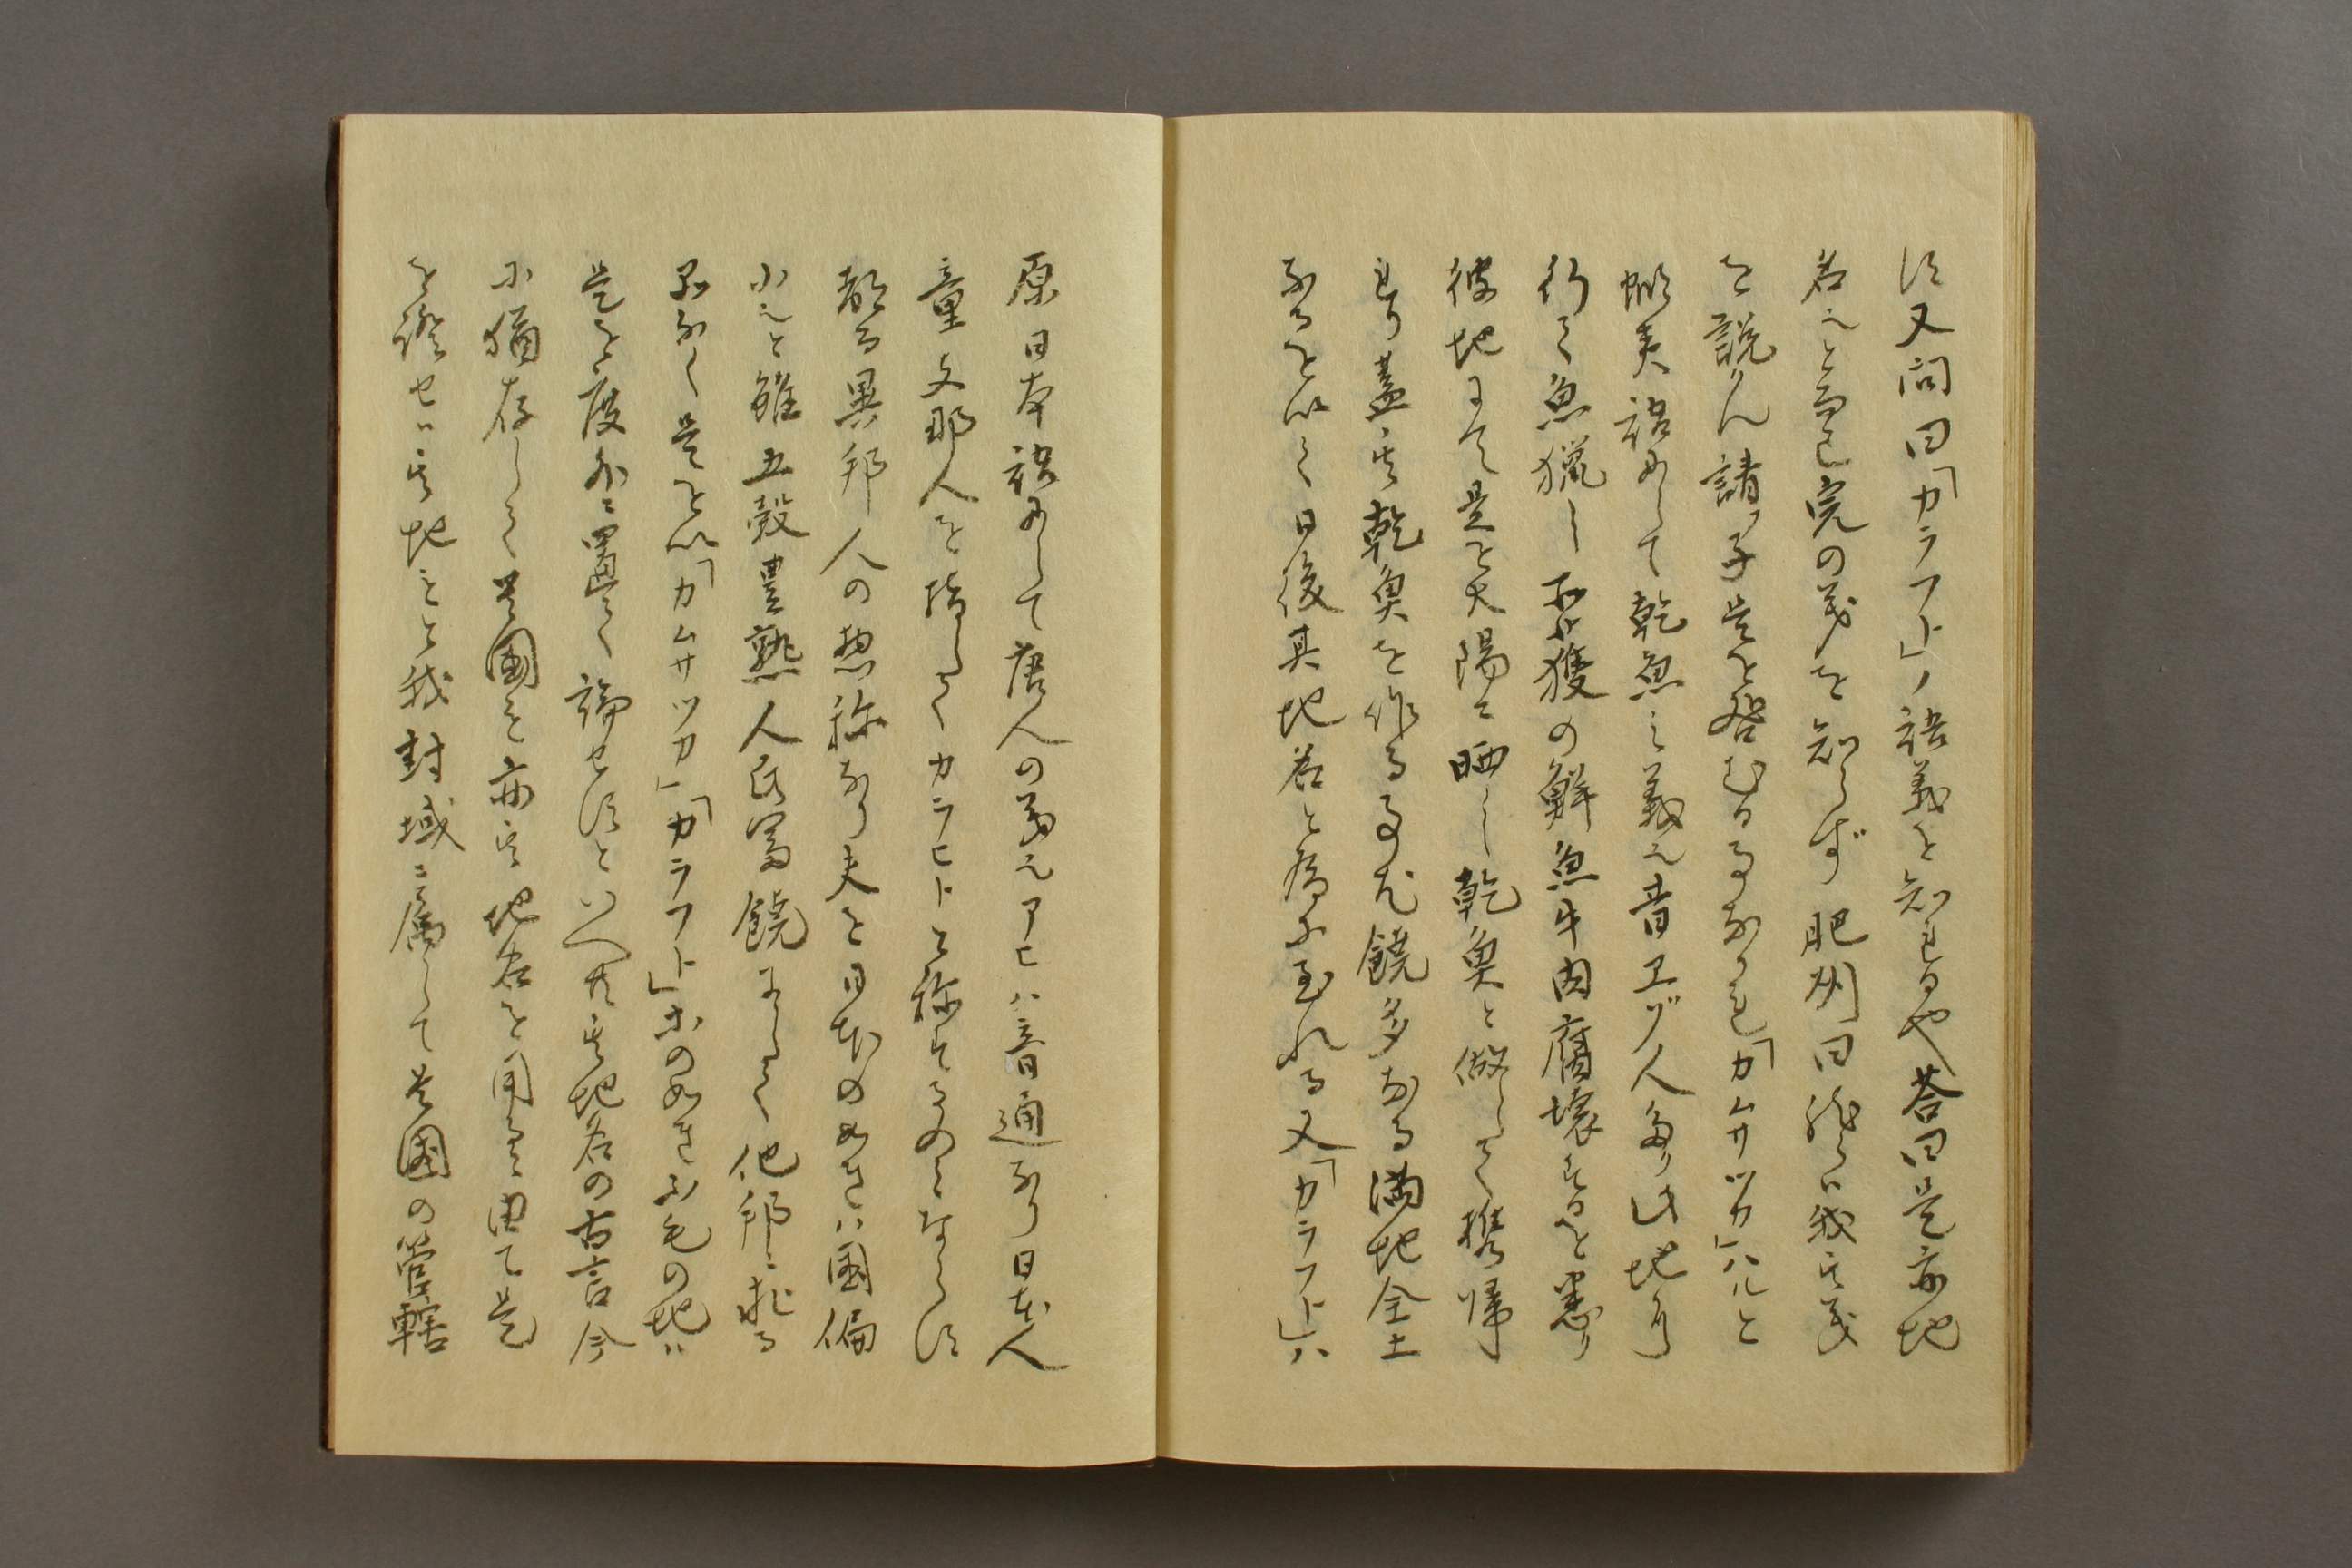 す又問曰「カラフト」ノ語義を知れるや答曰是亦地
名也と雖已完の義を知らず肥州曰然らハ我其義
を説ん諸子是を咎むる事なかれ「カムサツカ」ハルと
蝦夷語にして乾魚之義也昔エゾ人多り此地に
行て魚猟し所獲の鮮魚牛肉腐壊するを患り
彼地にて是を大陽ニ晒し乾魚と做して携帰
れり蓋其乾魚を作る事尤饒多なる満地全土
なるを以て日後其地名と為に至れる又「カラフト」ハ
原日本語にして唐人の義也フヒハ音通なり日本人
童支那人を指してカラヒトと称するのみならす
都る異邦人の惣称なり夫を日本のめさハ国偏
小也と雖五穀豊熟人民富饒にして他邦ニ求る
品なく是を以「カムサツカ」「カラフト」等の如き不毛の地ハ
是を度外ニ置て論せすといへ共其地名の古言今
に猶存して貴國も亦其地名を用る由て是
を證せハ其地もと我封域ニ属して貴國の管轄